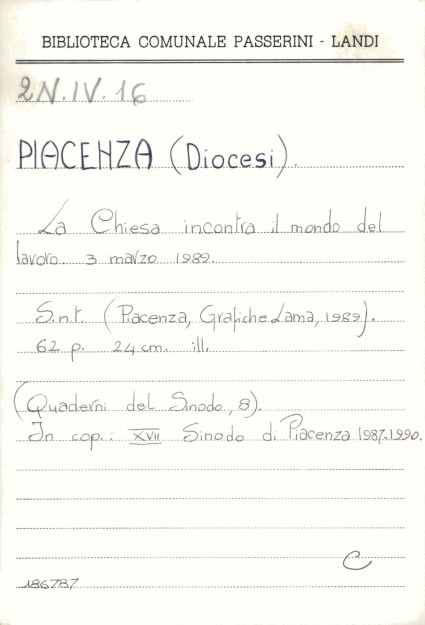 BIBLIOTECA COMUNALE PASSERINI - LANDI
2N.IV.16
PIACENZA (Diocesi).
La Chiesa incontra il mondo del
lavoro. 3 marzo 1989.
S.n.t. (Piacenza, Grafiche Lama, 1989).
62 p. 24 cm. ill.
(Quaderni del Sinodo, 8).
In cop.: XVII Sinodo di Piacenza 1987-1990.
C
186787